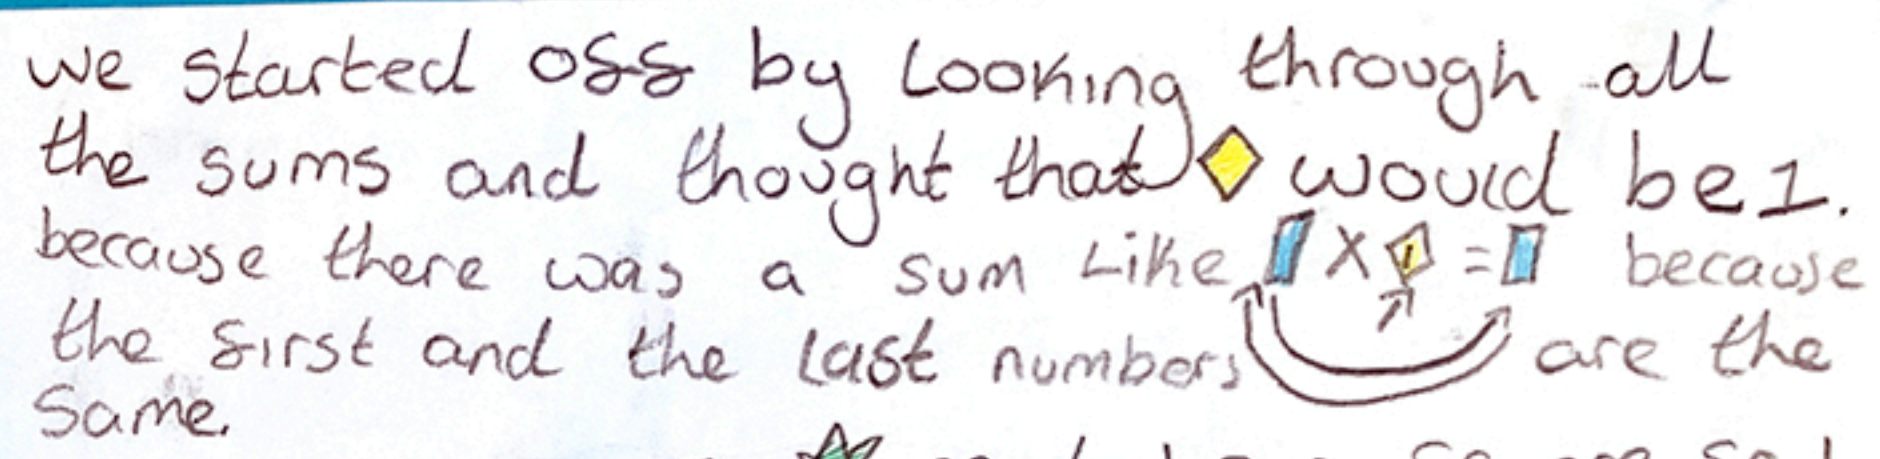 we started off by Looking through all
the sums and thought that would be 1.
because there was a sum Like X 1 = because
the first and the last numbers are the
Same.